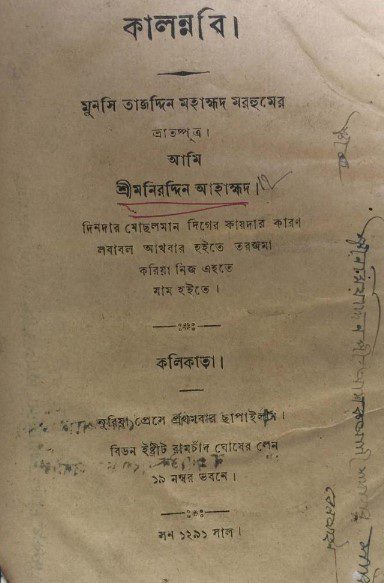 কালন্নবি।
মুনসি তাজদ্দিন মহাম্মদ মরহুমের
ভ্রাতষ্পুত্র।
আমি
শ্রীমনিরদ্দিন আহাম্মদ।
দিনদার মোছলমান দিগের ফায়দার কারণ
লবাবল আখবার হইতে তরজমা
করিয়া নিজ এহতে
মাম হইতে।
কলিকাতা।
নুরিয়া প্রেসে প্রথমবার ছাপাইলাম।
বিডন ইষ্ট্রীট রামচাঁদ ঘোষের লেন
১৯ নম্বর ভবনে।
সন ১২৯১ সাল।